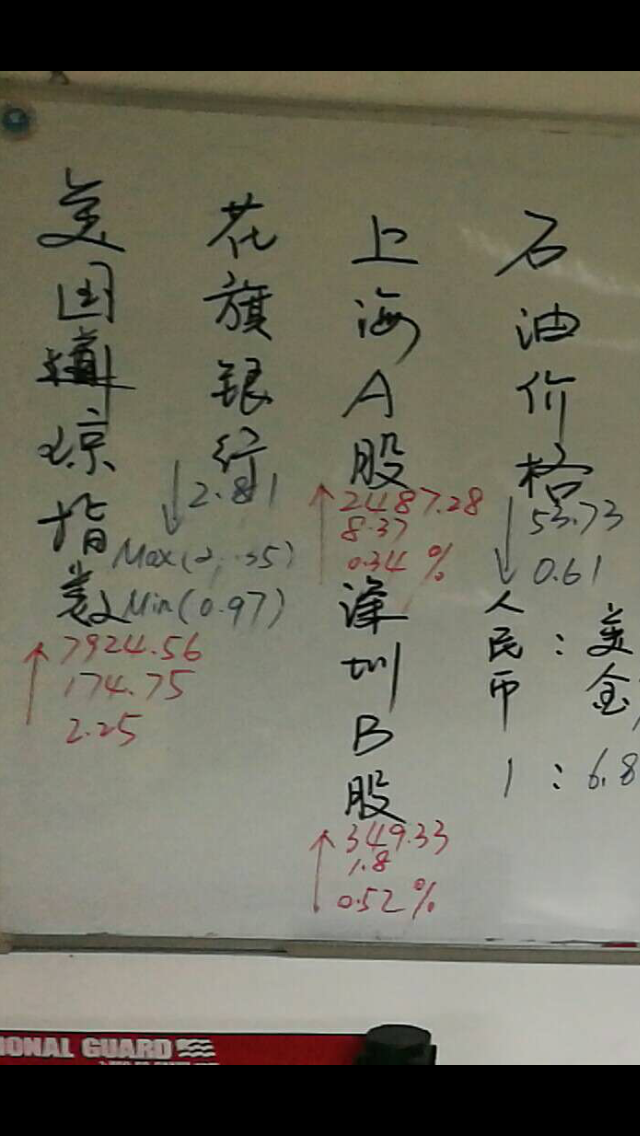 美国道琼指数
↑ 7924.56
174.75
2.25
花旗银行
↓ 2.81
Min(0.97)
上海A股
↑ 2487.28
8.37
0.34%
深圳B股
↑ 349.33
1.8
0.52%
石油价格
↓ 53.73
0.61
人民币：美金
1：6.8
IONAL GUARD